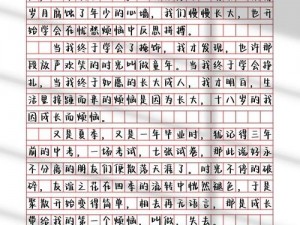 岁月腐蚀了年少的心墙，我们慢慢长大，也开
始学会在忧愁烦恼中反思拼搏。
当我终于学会了掩饰，我才发现，也许那
段放声欢笑的时光叫做童年。当我终于学会挣
扎，当我终于如愿的长大成人，我才明白，生
活里接踵而来的烦恼是因为长大，十八岁的我
因成长而烦恼。
又是夏季，又是一年毕业时，犹记得三年
前的中考，一场考试，七张试卷，那此说好永
不分离的朋友们便散落天涯了，时光不停的破
碎，友谊之花在四季的流转中恍然褪色，于是
聚散开始变得简单，相去再无言语，那是成长
带给我的第一个烦恼，叫做，失去。